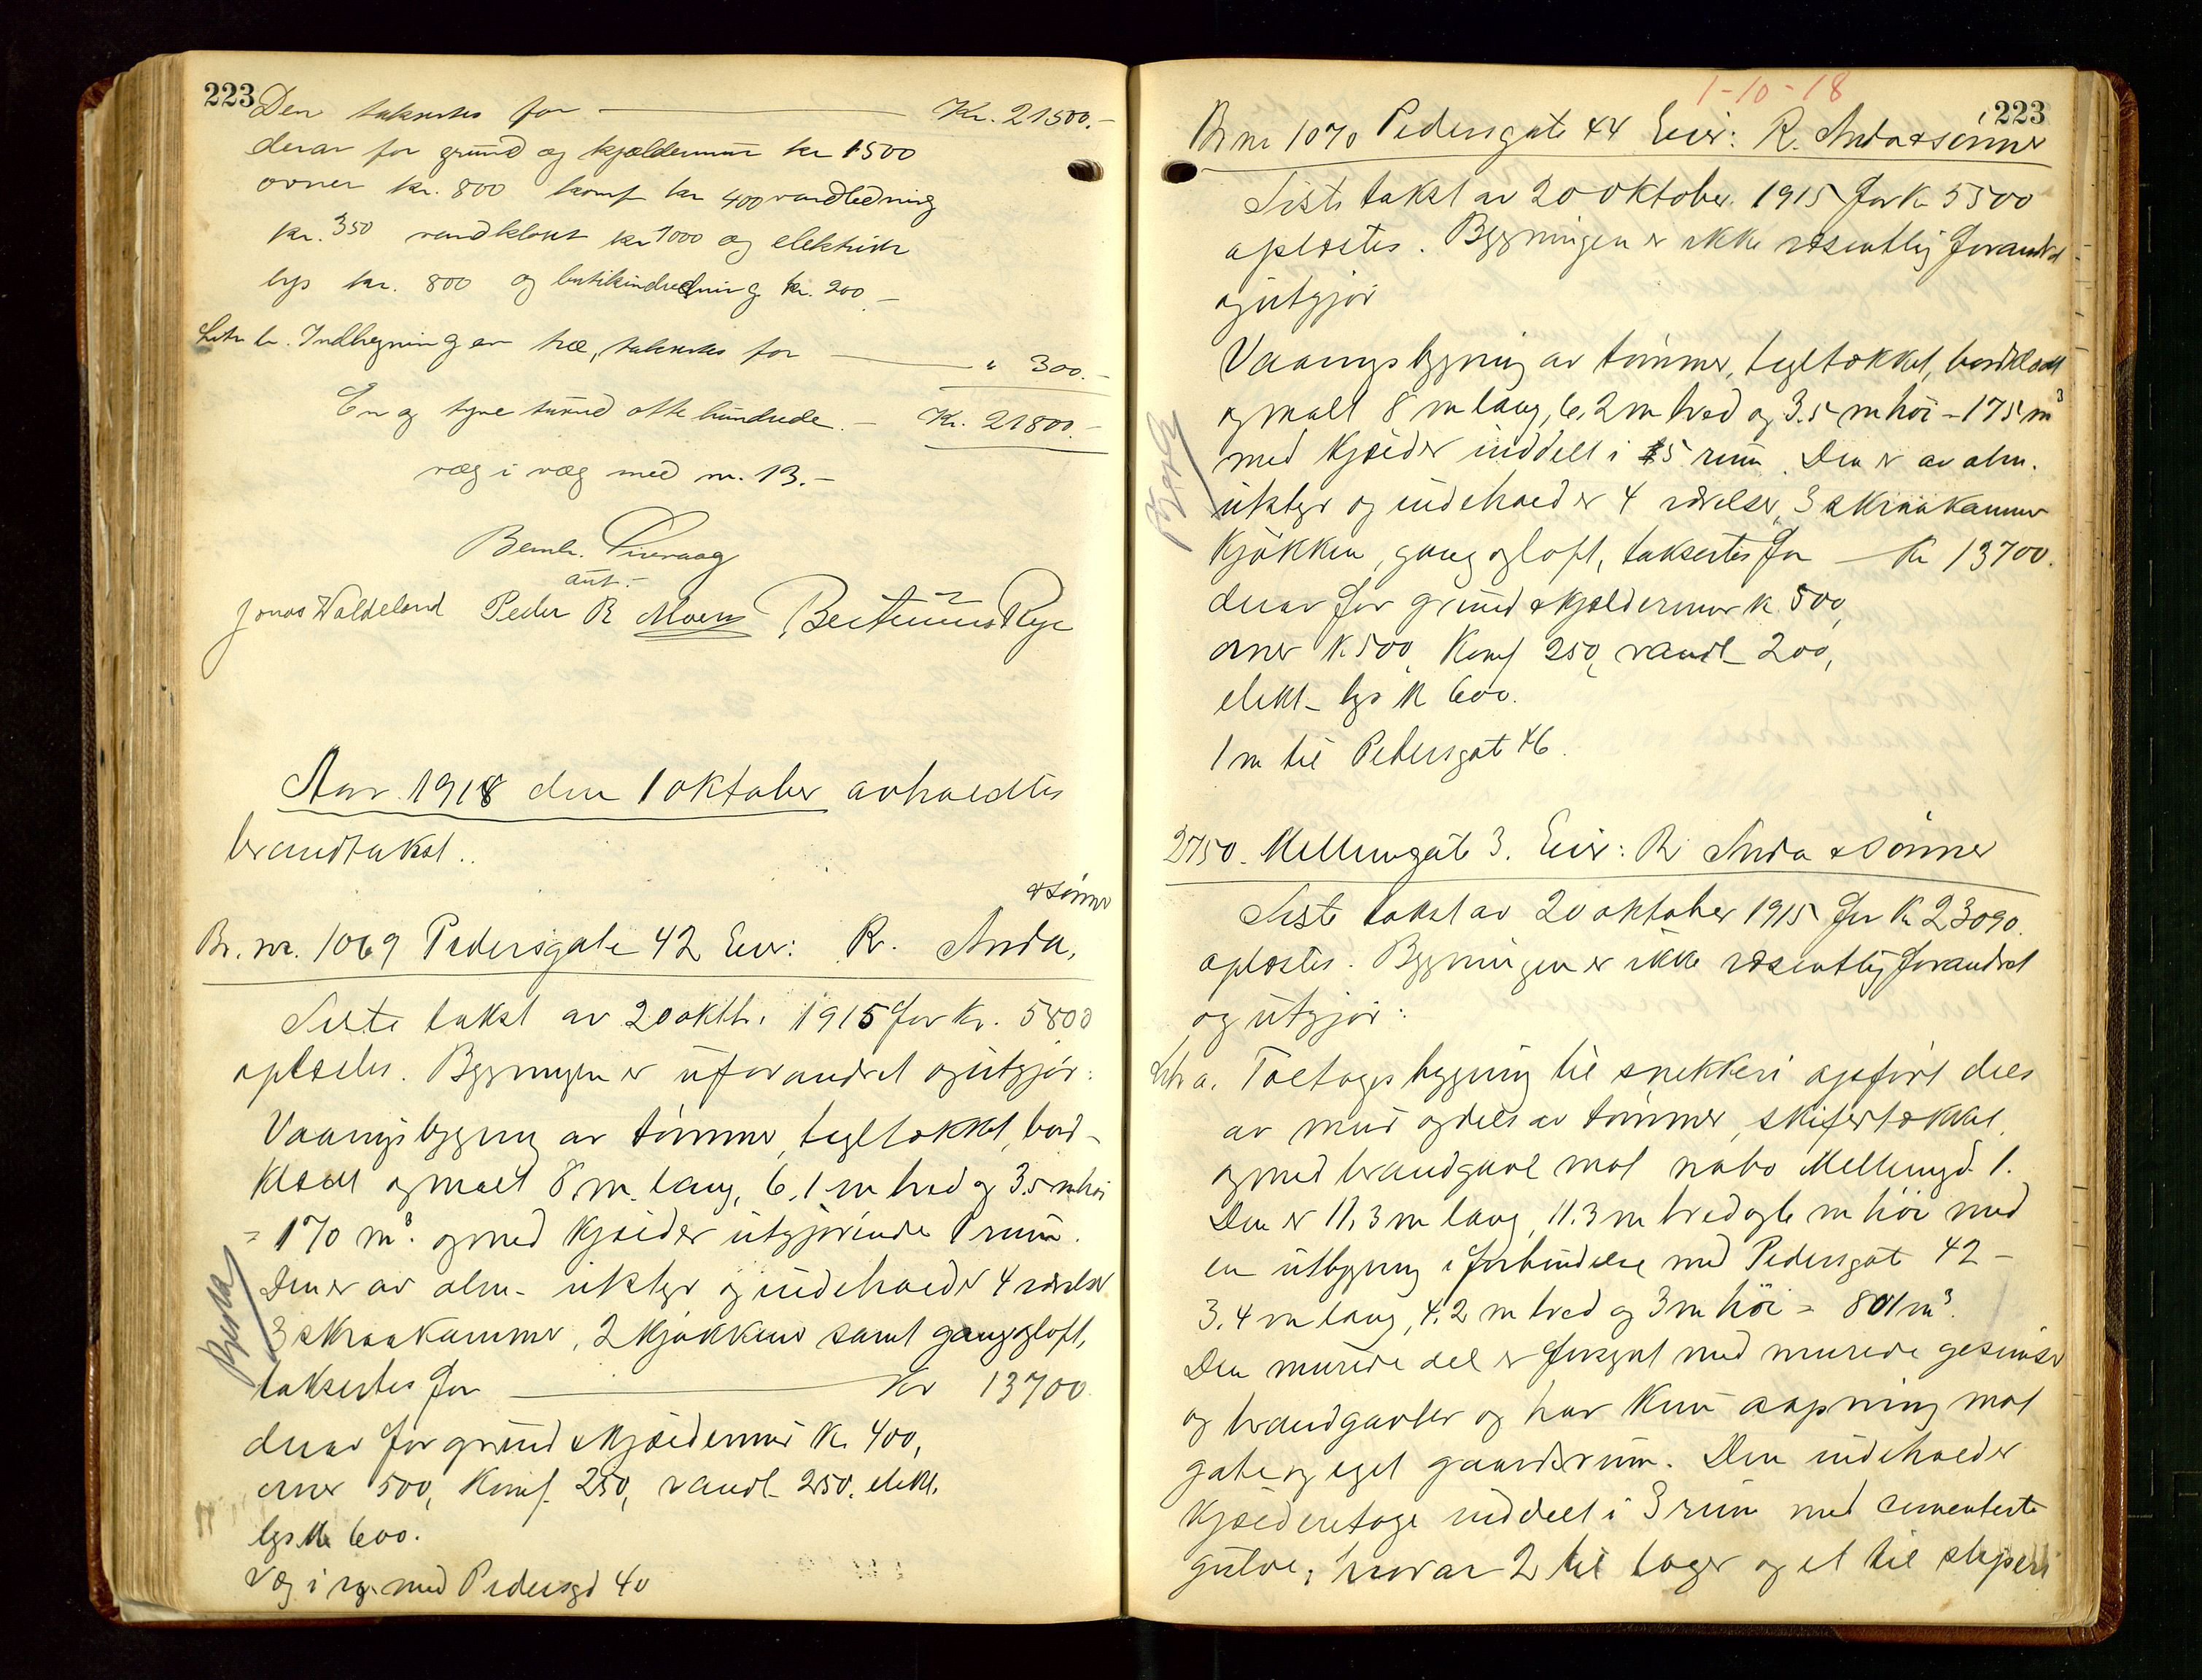 223
Den taksertes for Kr. 21500.-
derav for grund og kjældermur kr 1500
ovner kr. 800 komf kr 400 vandledning
kr. 350 vandkloset kr 1000 og elektrisk
lys kr. 800 og butikindredning kr. 200.-
Litr b. Indhegning av træ, taksertes for " 300.-
En og tyve tusind otte hundrede.- Kr. 21800.-
væg i væg med nr. 13.-
Bernh.
aut.-
Jonas Waldeland Peder R Moen
Aar 1918 den 1 oktober avholdtes
brandtakst..
& sønner
Br. nr. 1069 Pedersgate 42 Eier: R. Anda,
Siste takst av 20 oktb. 1915 for kr. 5800
oplæstes. Bygningen er uforandret og utgjør:
Vaaningsbygning av tømmer, tegltækket, bord-
klædt og malt 8 m. lang, 6,1 m bred og 3.5 m høi
= 170 m³. og med kjælder utgjørende 1 rum.
Den er av alm. utstyr og indeholder 4 værelser
3 skraakammer, 2 kjøkkens samt gang og loft,
taksertes for Kr 13700
derav for grund & kjældermur K. 400,
ovner 500, Komf. 250, vandl. 250. elekt.
lys K 600.
Væg i væg med Pedersgd 40
1-10-18
223
Br nr 1070 Pedersgate 44 Eier: R. Anda & sønner
Siste takst av 20 oktober 1915 for K 5500
oplæstes. Bygningen er ikke væsentlig forandret
og utgjør
Vaaningsbygning av tømmer, tegltækket, bordklædt
og malt 8 m lang, 6,2 m bred og 3.5 m høi = 175 m³
med kjælder inddelt i 5 rum. Den er av alm.
utstyr og indeholder 4 værelser, 3 skraakammer
kjøkken, gang og loft, taksertes for Kr 13700.
derav for grund & kjældermur k. 500,
ovner K 500, Komf 250, vandl. 200,
elekt. lys K 600.
1 m til Pedersgate 46.
2750. Mellemgate 3. Eier: R Anda & sønner
Siste takst av 20 oktober 1915 for K 23090.
oplæstes. Bygningen er ikke væsentlig forandret
og utgjør:
Litr a. Toetages bygning til snekkeri opført dels
av mur og dels av tømmer, skifertækket,
og med brandgavl mot nabo Mellemgd. 1.
Den er 11,3 m lang, 11.3 m bred og 6 m høi med
en utbygning i forbindelse med Pedersgate 42 -
3,4 m lang, 4,2 m bred og 3 m høi = 801 m³.
Den murede del er forsynt med murede gesimser
og brandgavler og har kun aapning mot
gate og eget gaardsrum. Den indeholder
kjælderetage inddelt i 3 rum med sementerte
gulve, hvorav 2 til lager og et til sliperi